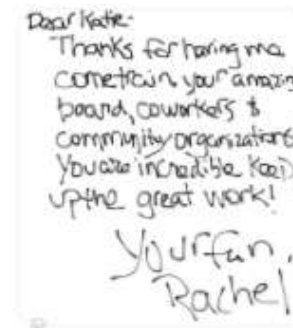 Dear Katie-
Thanks for having me
come train your amazing
board, coworkers &
community organizations
You are incredible Keep
up the great work!
Your fan,
Rachel